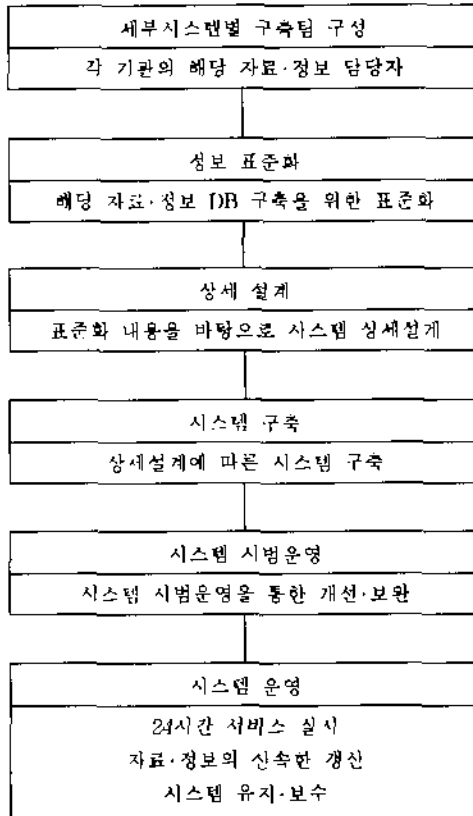 세부시스템별 구축팀 구성
각 기관의 해당 자료·정보 담당자
정보 표준화
해당 자료·정보 DB 구축을 위한 표준화
상세 설계
표준화 내용을 바탕으로 시스템 상세설계
시스템 구축
상세설계에 따른 시스템 구축
시스템 시범운영
시스템 시범운영을 통한 개선·보완
시스템 운영
24시간 서비스 실시
자료·정보의 신속한 갱신
시스템 유지·보수